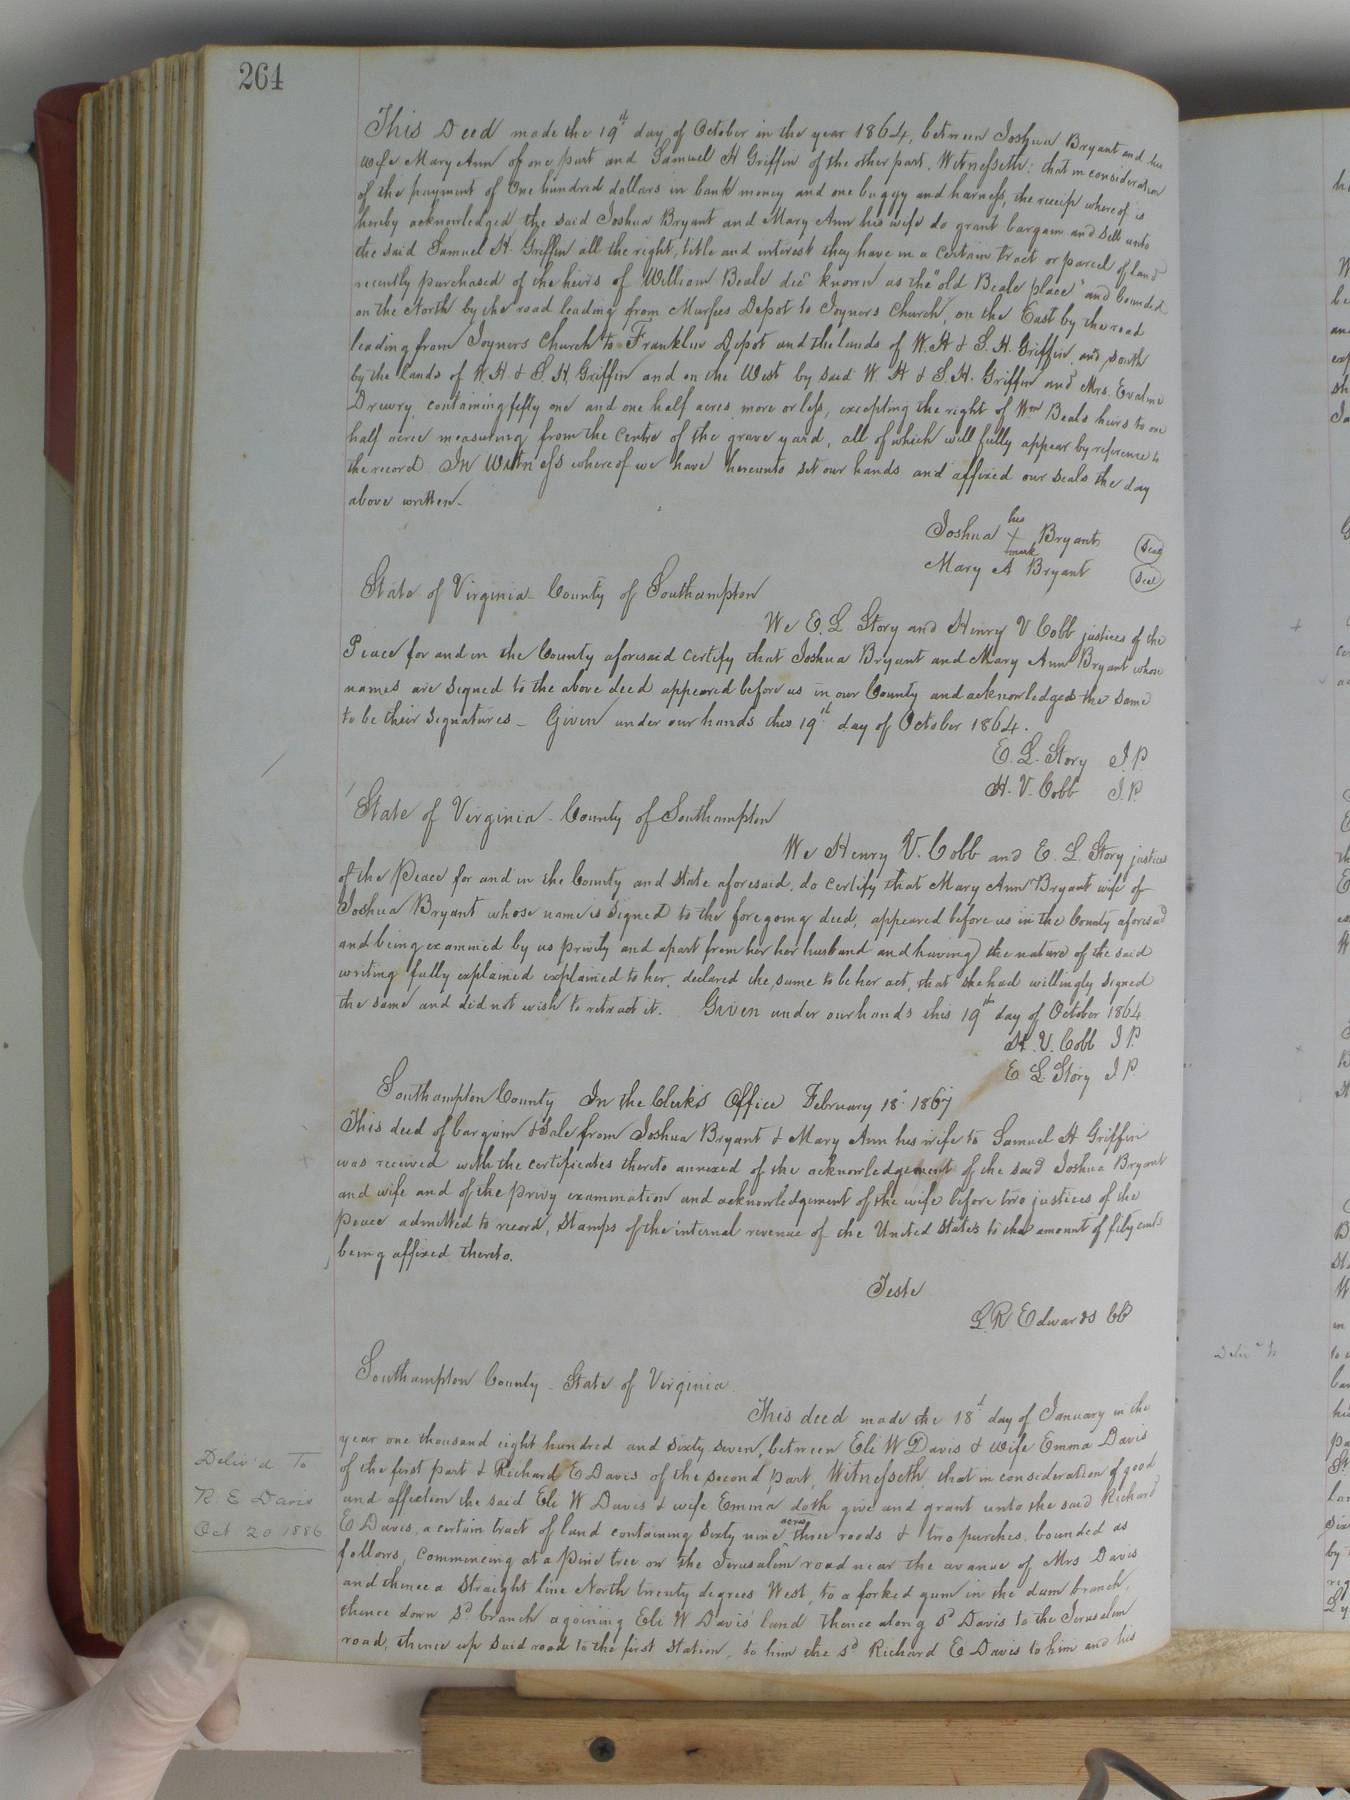 264
This Deed made the 19th day of October in the year 1864, between Joshua Bryant and his
wife Mary Ann of one part and Samuel H Griffin of the other part, Witnesseth: that in consideration
of the payment of One hundred dollars in bank money and one buggy and harness, the receip whereof is
hereby acknowledged the said Joshua Bryant and Mary Ann his wife do grant bargain and sell unto
the said Samuel H. Griffin all the right, title and interest they have in a certain tract or parcel of land
recently purchased of the heirs of William Beale decd known as the "old Beale place" and bounded
on the North by the road leading from Murfees Depot to Joyners Church, on the East by the road
leading from Joyners Church to Franklin Depot and the lands of W. H & S. H. Griffin and South
by the lands of W. H & S. H. Griffin and on the West by said W. H & S. H. Griffin and Mrs. Evaline
Drewry, containing fifty one and one half acres more or less, excepting the right of Wm Beals heirs to one
half acre measuring from the centre of the grave yard, all of which will fully appear by reference to
the record. In Witness whereof we have hereunto set our hands and affixed our seals the day
above written.
his
Joshua X Bryant Seal
mark
Mary A Bryant Seal
State of Virginia - County of Southampton
We E. L Story and Henry V Cobb justices of the
Peace for and in the County aforesaid certify that Joshua Bryant and Mary Ann Bryant whose
names are signed to the above deed appeared before us in our County and acknowledged the same
to be their signatures - Given under our hands this 19th day of October 1864.
E. L. Story J. P.
H. V. Cobb J. P.
State of Virginia - County of Southampton
We Henry V. Cobb and E. L. Story justices
of the Peace for and in the County and state aforesaid, do certify that Mary Ann Bryant wife of
Joshua Bryant whose name is signed to the foregoing deed, appeared before us in the County aforesaid
and being examined by us privily and apart from her her husband and having the nature of the said
writing fully explained explained to her, declared the same to be her act, that she had willingly signed
the same and did not wish to retract it. Given under our hands this 19th day of October 1864
H. V. Cobb J P.
E L Story J P.
Southampton County In the Clerk's Office February 18th 1867
This deed of bargain & sale from Joshua Bryant & Mary Ann his wife to Samuel H Griffin
was received with the certificates thereto annexed of the acknowledgement of the said Joshua Bryant
and wife and of the privy examination and acknowledgement of the wife before two justices of the
peace admitted to record, stamps of the internal revenue of the United States to the amount of fifty cents
being affixed thereto.
Teste
L. R. Edwards CC
Southampton County - State of Virginia
This deed made the 18th day of January in the
year one thousand eight hundred and sixty seven, between Eli W Davis & wife Emma Davis
of the first part & Richard E Davis of the second part, Witnesseth, that in consideration of good
and affection the said Eli W Davis & wife Emma doth give and grant unto the said Richard
E Davis, a certain tract of land containing sixty nine acres three roods & two purches, bounded as
follows, commencing at a Pine tree on the Jerusalem road near the avanue of Mrs Davis
and thence a straight line North twenty degrees West, to a forked gum in the dam branch,
thence down sd branch agoining Eli W Davis' land thence along sd Davis to the Jerusalem
road, thence up said road to the first station, to him the sd Richard E Davis to him and his
Deliv'd To
R. E Davis
Oct 20 1886